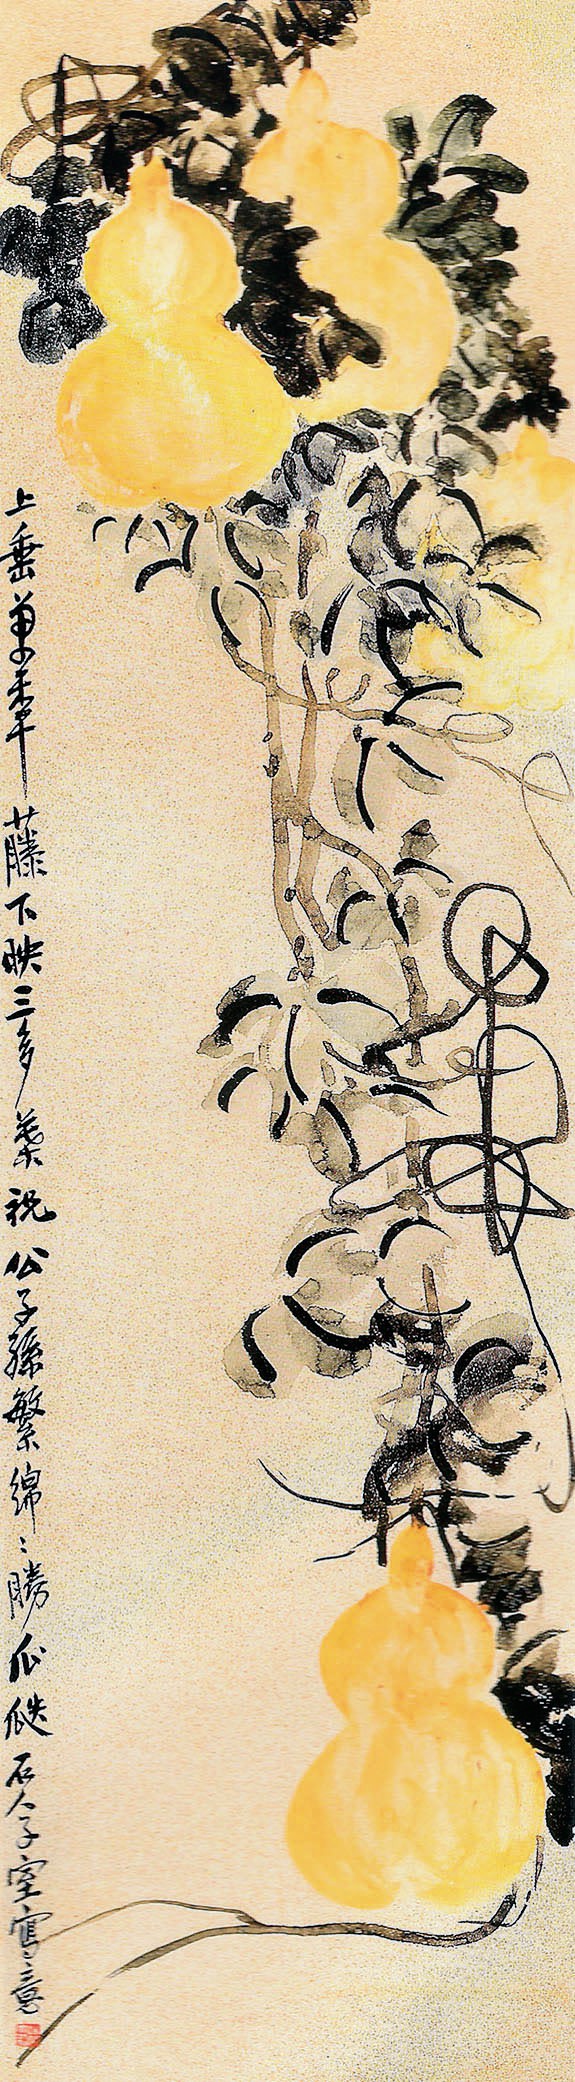 上垂草年藤下映三多葉祝公子孫繁綿〻勝瓜瓞石人子室寫意